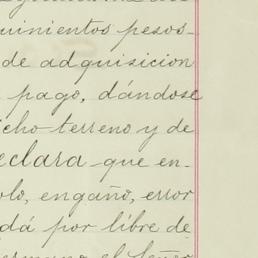 uinientos pesos-
de adquisicion
pago, dándose
icho terreno y de
eclara que en-
olo, engaño, error
dá por libre de
ermano el Señor